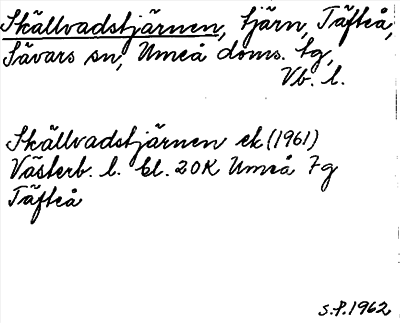 Skällvadstjärnen, tjärn, Täfteå,
Sävars sn, Umeå doms. tg,
Vb. l.
Skällvadstjärnen ek (1961)
Västerb. l. bl. 20K Umeå 7g
Täfteå
S.P. 1962